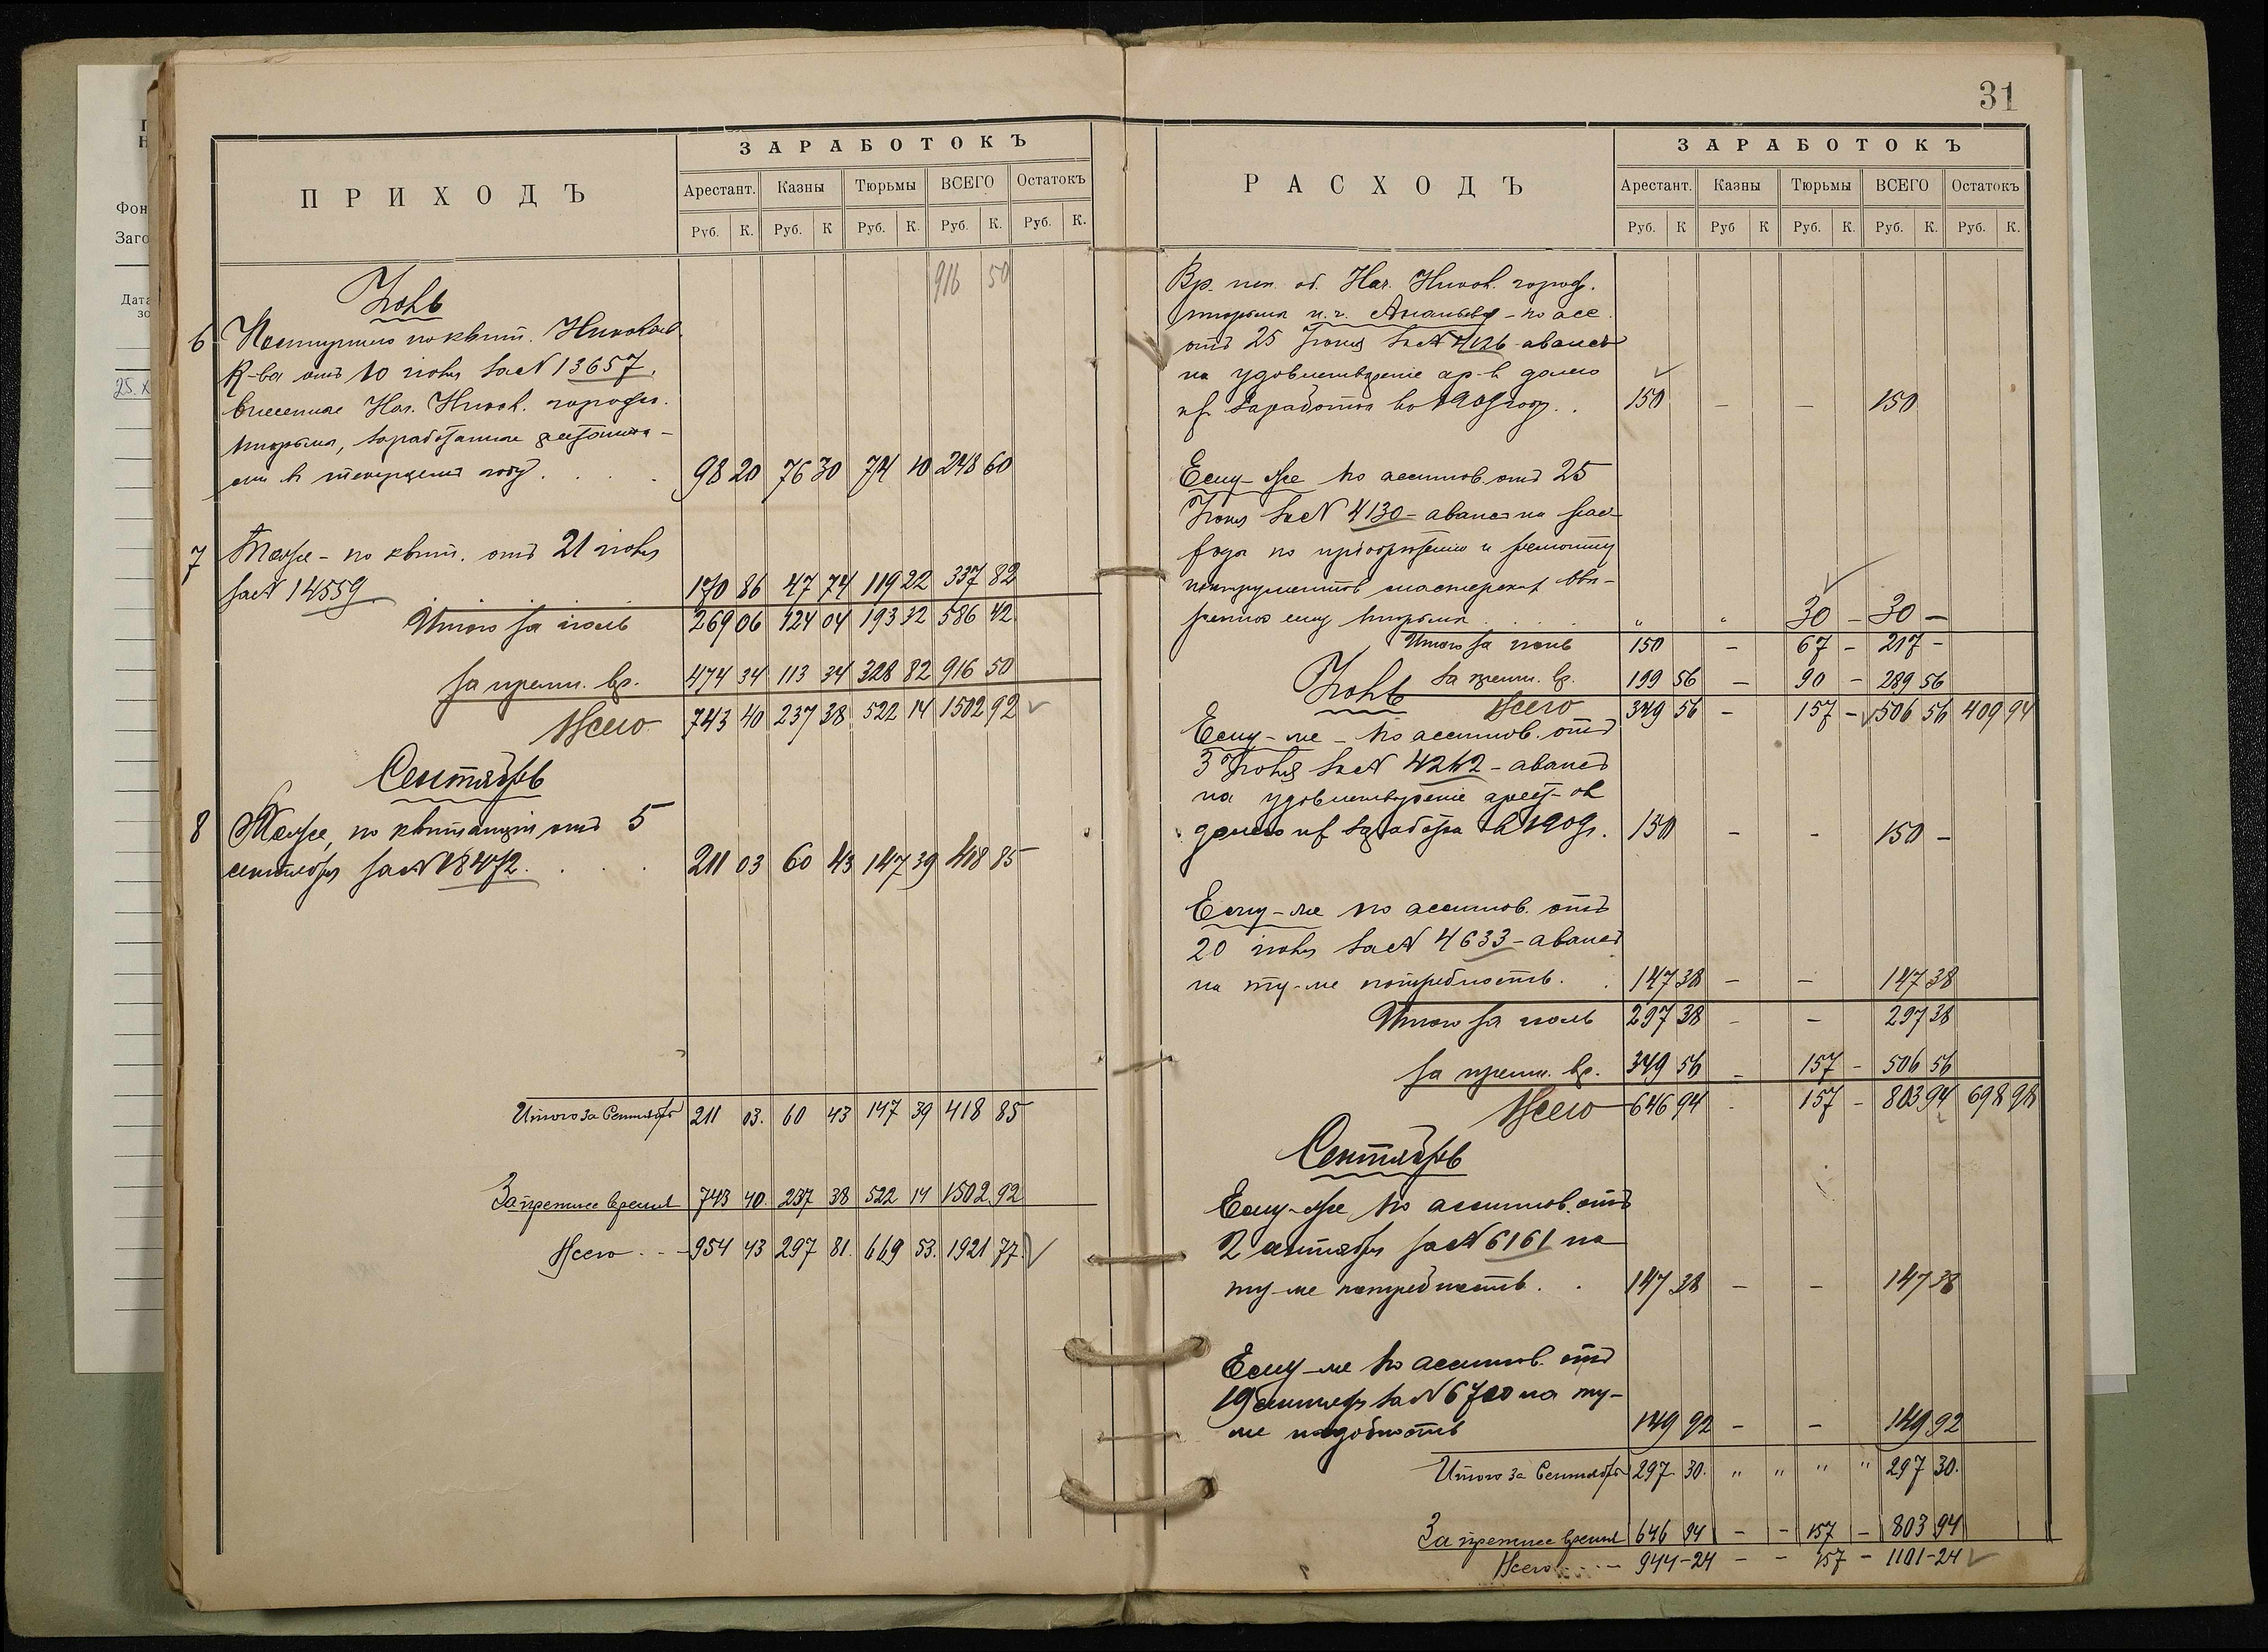 31
ПРИХОДЪ
ЗАРАБОТОКЪ
Арестант. Казны Тюрьмы ВСЕГО Остатокъ
Руб. К. Руб. К Руб. К. Руб. К. Руб. К.
916 50
Іюль
6 Поступило по квит. Николаев.
К-ва отъ 10 іюля за № 13657,
внесенные Нач. Никол. городск.
тюрьмы, заработанные арестанта-
ми въ текущемъ году . . . . 98 20 76 30 74 10 248 60
7 Тоже - по квит. отъ 21 іюля
за № 14559 170 86 47 74 119 22 337 82
Итого за іюль 269 06 124 04 193 32 586 42
за прежн. вр. 474 34 113 34 328 82 916 50
Всего 743 40 237 38 522 14 1502 92
Сентябрь
8 Тоже, по квитанціи отъ 5
сентября за № 18472. . . . 211 03 60 43 147 39 418 85
Итого за Сентябрь 211 03. 60 43 147 39 418 85
За прежнее время 743 40. 237 38 522 14 1502 92
Всего . - - 954 43 297 81. 669 53. 1921 77.
РАСХОДЪ
ЗАРАБОТОКЪ
Арестант. Казны Тюрьмы ВСЕГО Остатокъ
Руб. К Руб К Руб. К. Руб. К. Руб. К.
Вр. исп. об. Нач. Никол. городск.
тюрьмы н. ч. Ананьеву - по асс.
отъ 25 Іюня за № 4126 авансъ
на удовлетвореніе ар-въ долею
изъ заработка въ 1909 году. . 150 — — 150
Ему-же по ассигнов. отъ 25
Іюня за № 4130 - авансъ на рас-
ходы по пріобрѣтенію и ремонту
инструментовъ мастерскихъ ввѣ-
ренной ему тюрьмы . . . . „ „ 30 — 30 —
Итого за іюнь 150 — 67 — 217 —
За прежн. вр. 199 56 — 90 — 289 56
Всего 349 56 — 157 — 506 56 409 94
Іюль
Ему-же - по ассигнов. отъ
3 Іюля за № 4242 - авансъ
на удовлетвореніе арест-овъ
долею изъ заработка въ 1909г. 150 — — 150 —
Ему-же по ассигнов. отъ
20 іюля за № 4633 - авансъ
на ту-же потребность. . 147 38 — — 147 38
Итого за іюль 297 38 — — 297 38
за прежн. вр. 349 56 — 157 — 506 56
Всего 646 94 - 157 — 803 94 698 98
Сентябрь
Ему-же по ассигнов. отъ
2 сентября за № 6161 на
ту-же потребность. . 147 38 — — 147 38
Ему-же по ассигнов. отъ
19 сентября за № 6700 на ту-
же надобность 149 92 — — 149 92
Итого за Сентябрь 297 30. „ „ „ „ 297 30.
За прежнее время 646 94 — — 157 — 803 94
Всего . . . — 944-24 — — 157 — 1101-24